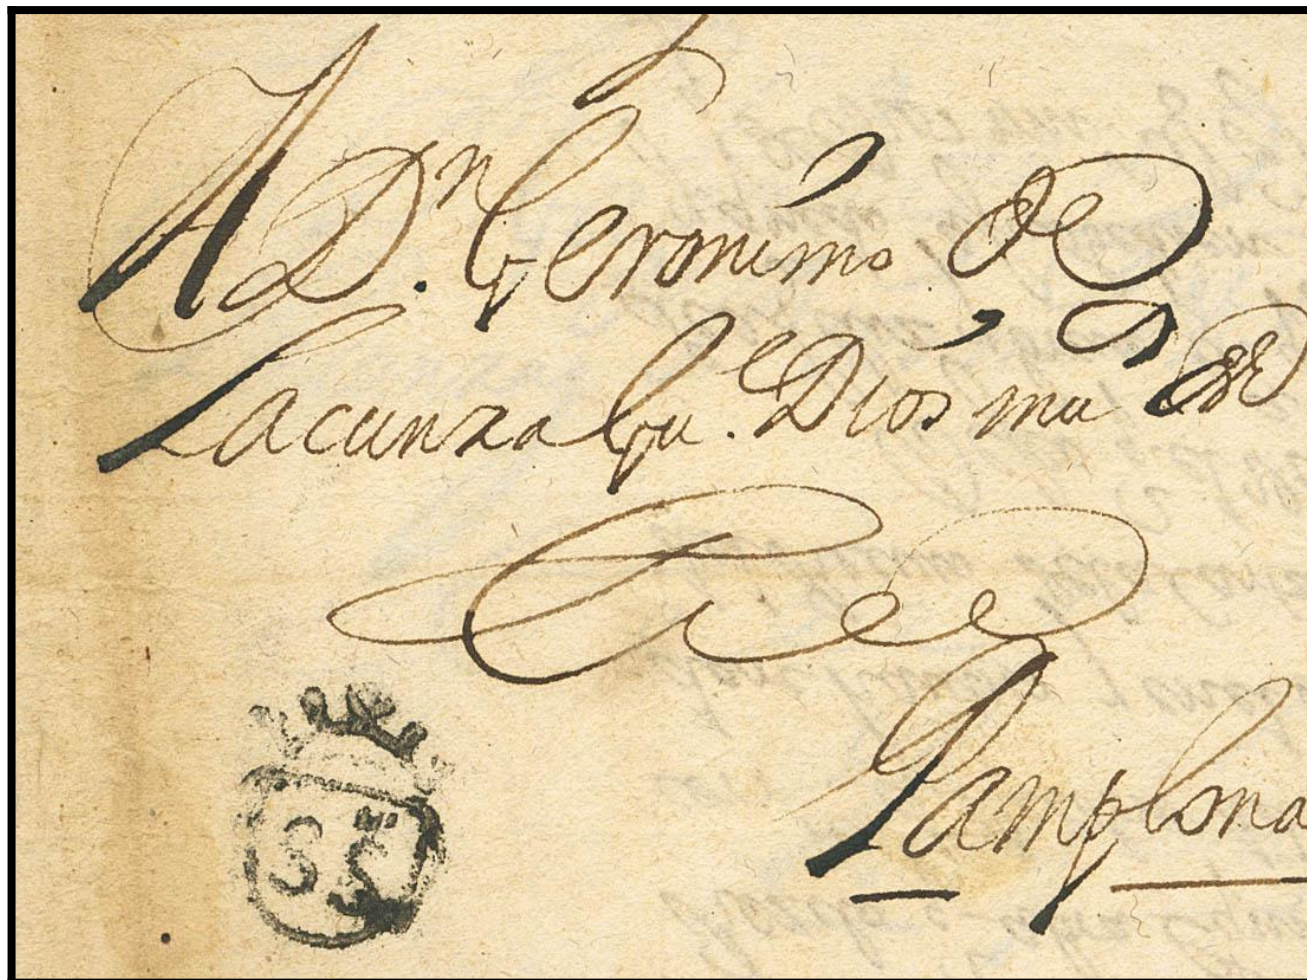 A Dn. Geronimo de
Lacunza Gue. Dios ms. as.
Pamplona
SS